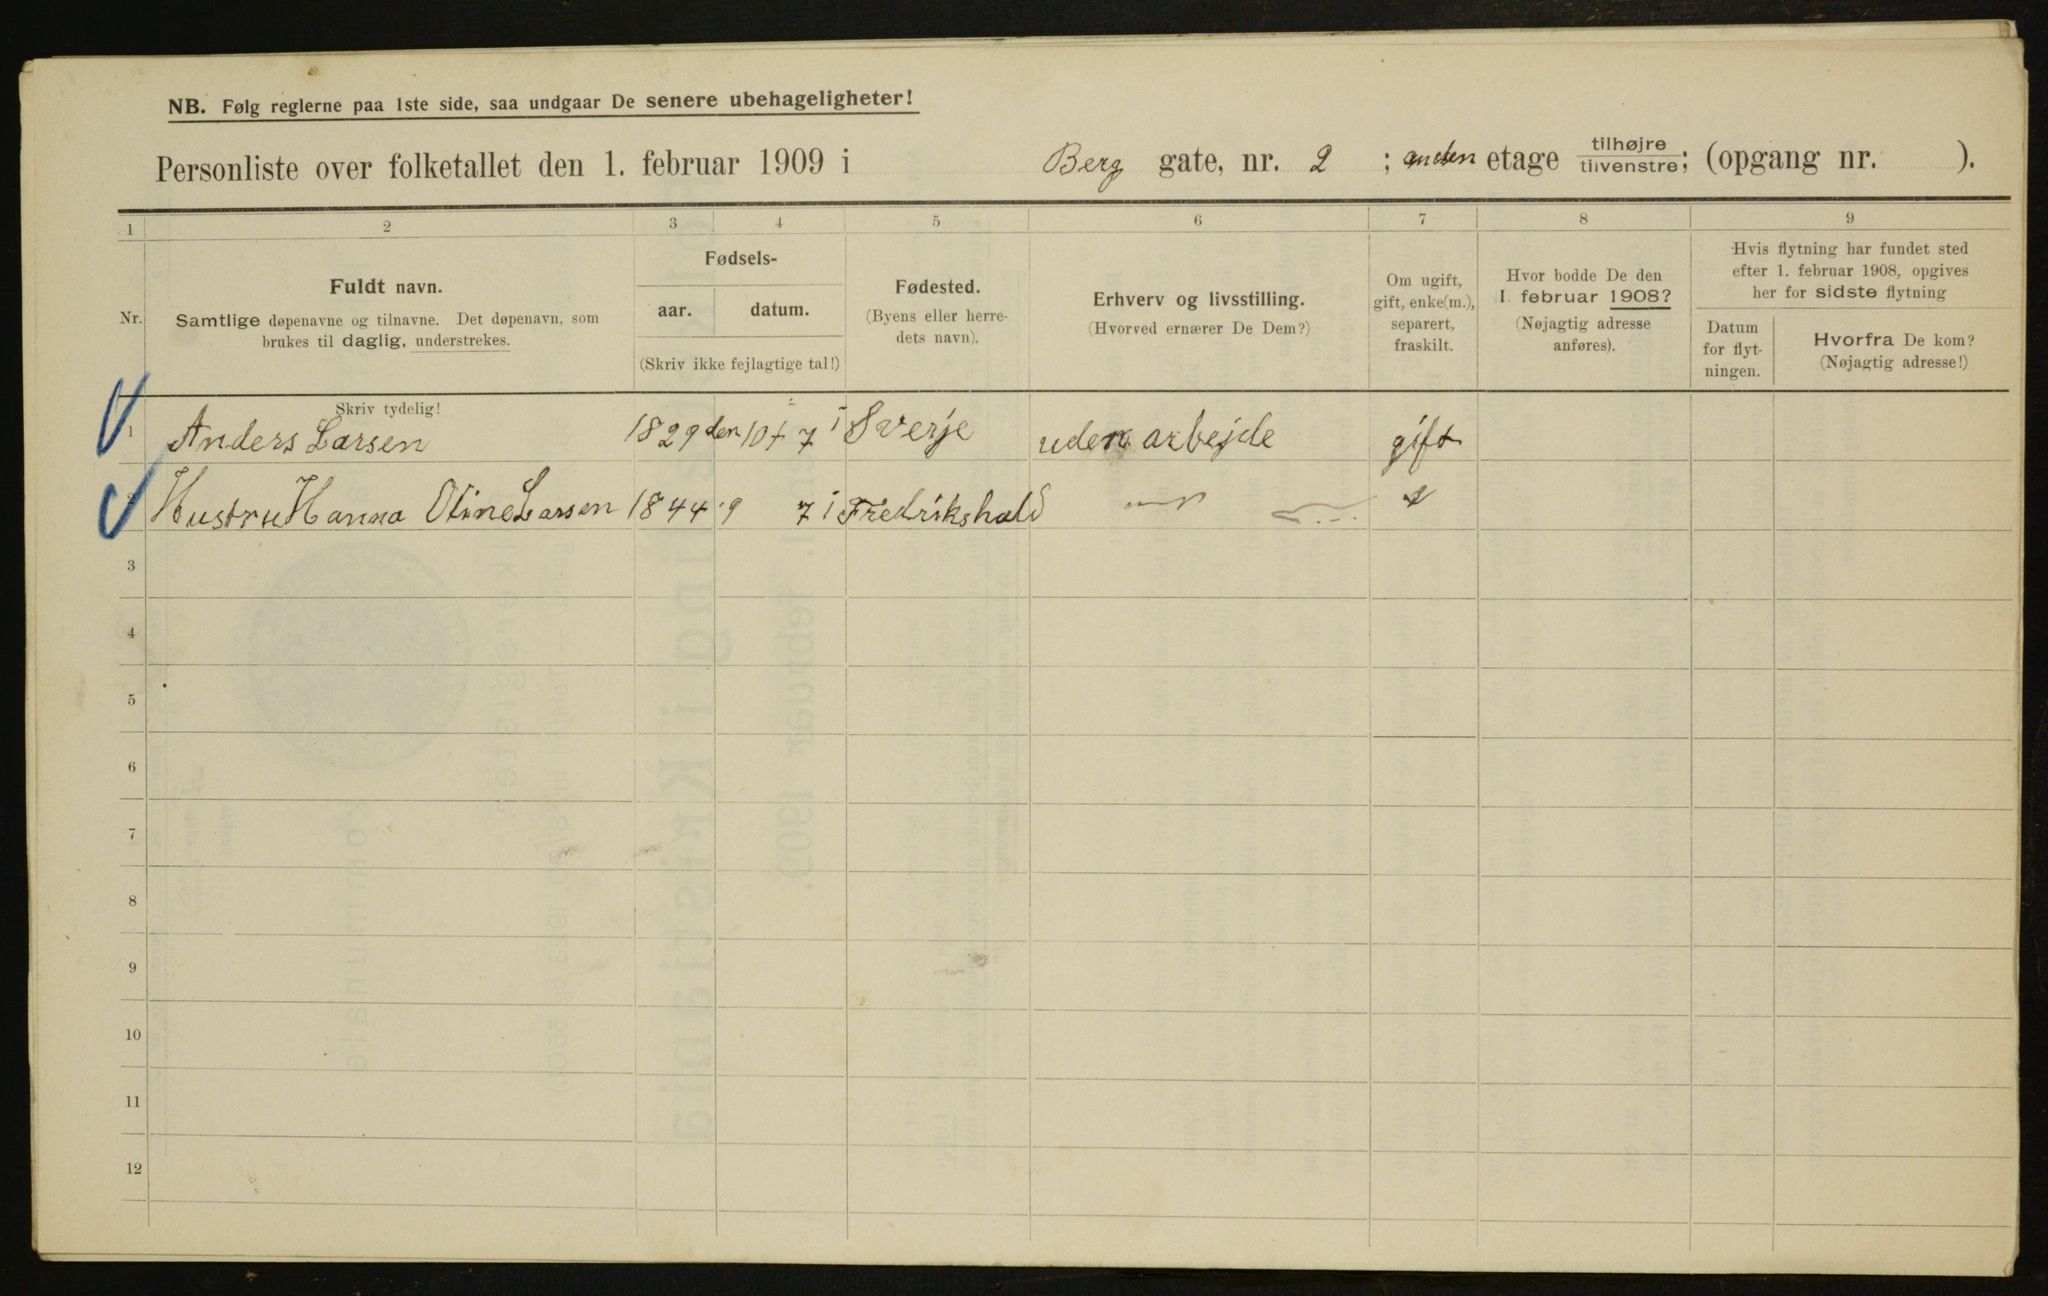 NB. Følg reglerne paa 1ste side, saa undgaar De senere ubehageligheter!
Personliste over folketallet den 1. februar 1909 i Berg gate, nr. 2 ; anden etage tilhøjre tilvenstre; (opgang nr. ).
1 2 3 4 5 6 7 8 9
Nr.
Fuldt navn.
Samtlige døpenavne og tilnavne. Det døpenavn, som
brukes til daglig, understrekes.
Fødsels-
aar. datum.
(Skriv ikke fejlagtige tal!)
Fødested.
(Byens eller herre-
dets navn).
Erhverv og livsstilling.
(Hvorved ernærer De Dem?)
Om ugift,
gift, enke(m.),
separert,
fraskilt.
Hvor bodde De den
1. februar 1908?
(Nøjagtig adresse
anføres).
Hvis flytning har fundet sted
efter 1. februar 1908, opgives
her for sidste flytning
Datum
for flyt-
ningen.
Hvorfra De kom?
(Nøjagtig adresse!)
Skriv tydelig!
1 Anders Larsen 1829 den 10 7 i Sverje uden arbejde gift
Hustru Hanna Oline Larsen 1844 9 7 i Fredrikshald
3
4
5
6
7
8
9
10
11
12